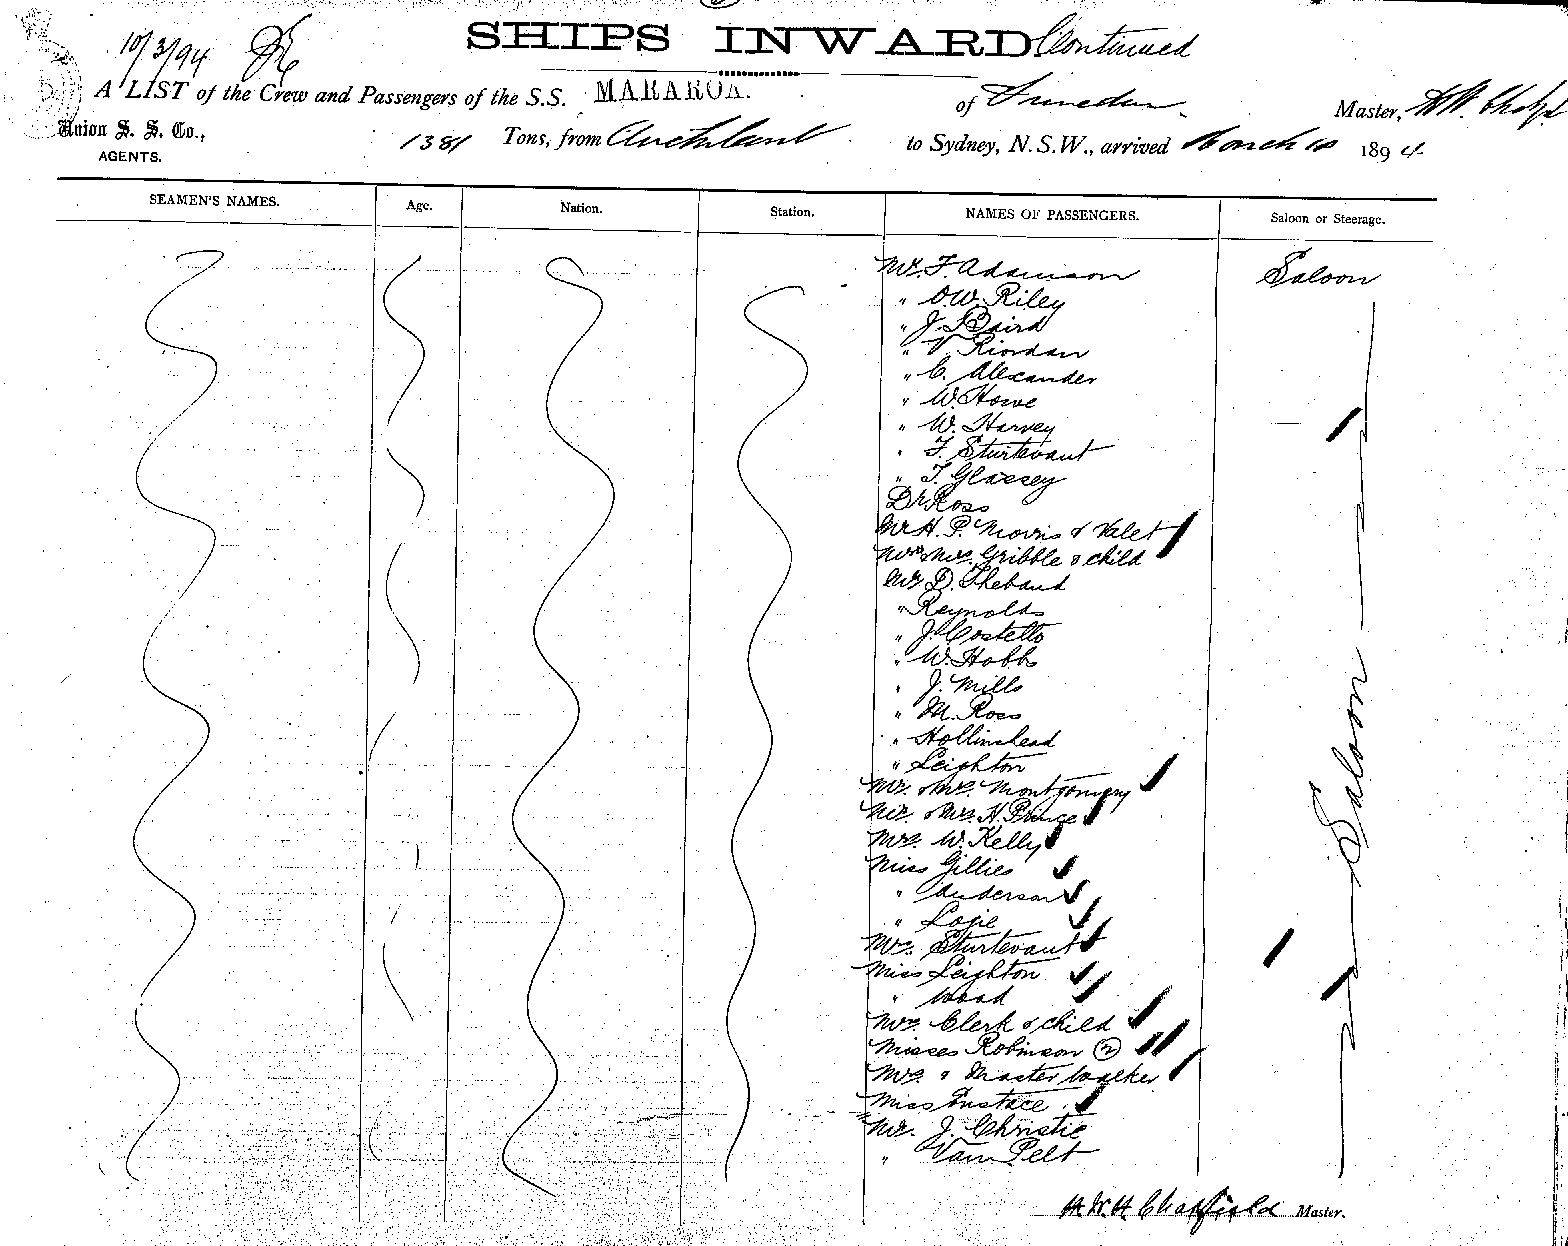 SHIPS INWARD Continued
10/3/94
A LIST of the Crew and Passengers of the S.S. MARAROA. of Dunedin Master, H W Chatfd
Union S. S. Co.,
AGENTS.
1381 Tons, from Auckland to Sydney, N.S.W., arrived March 10 1894
SEAMEN'S NAMES. Age. Nation. Station. NAMES OF PASSENGERS. Saloon or Steerage.
Mr. F. Adamson Saloon
" O.W. Riley
" J Baird
" V. Riordan
" C. Alexander
" W. Howe
" W. Harvey
" F. Sturtevant
" T. Glassey
Dr Ross
Mr H. P. Morris & Valet
Mr & Mrs. Gribble & child
Mr D. Thebaud
" Reynolds
" J. Costello
" W. Hobbs
" J. Mills
" M. Ross
" Hollinshead
" Leighton
Mr. & Mrs. Montgomery
Mr. & Mrs. H. Prince
Mrs. W. Kelly
Miss Gillies
" Anderson
" Logie
Mrs. Sturtevant
Miss Leighton
" Wood
Mrs. Clerk & child
Misses Robinson (2)
Mrs. & Master Walker
Miss Eustace
Mr. J. Christie
" Van Pelt
Saloon
H.W.H. Chatfield Master.